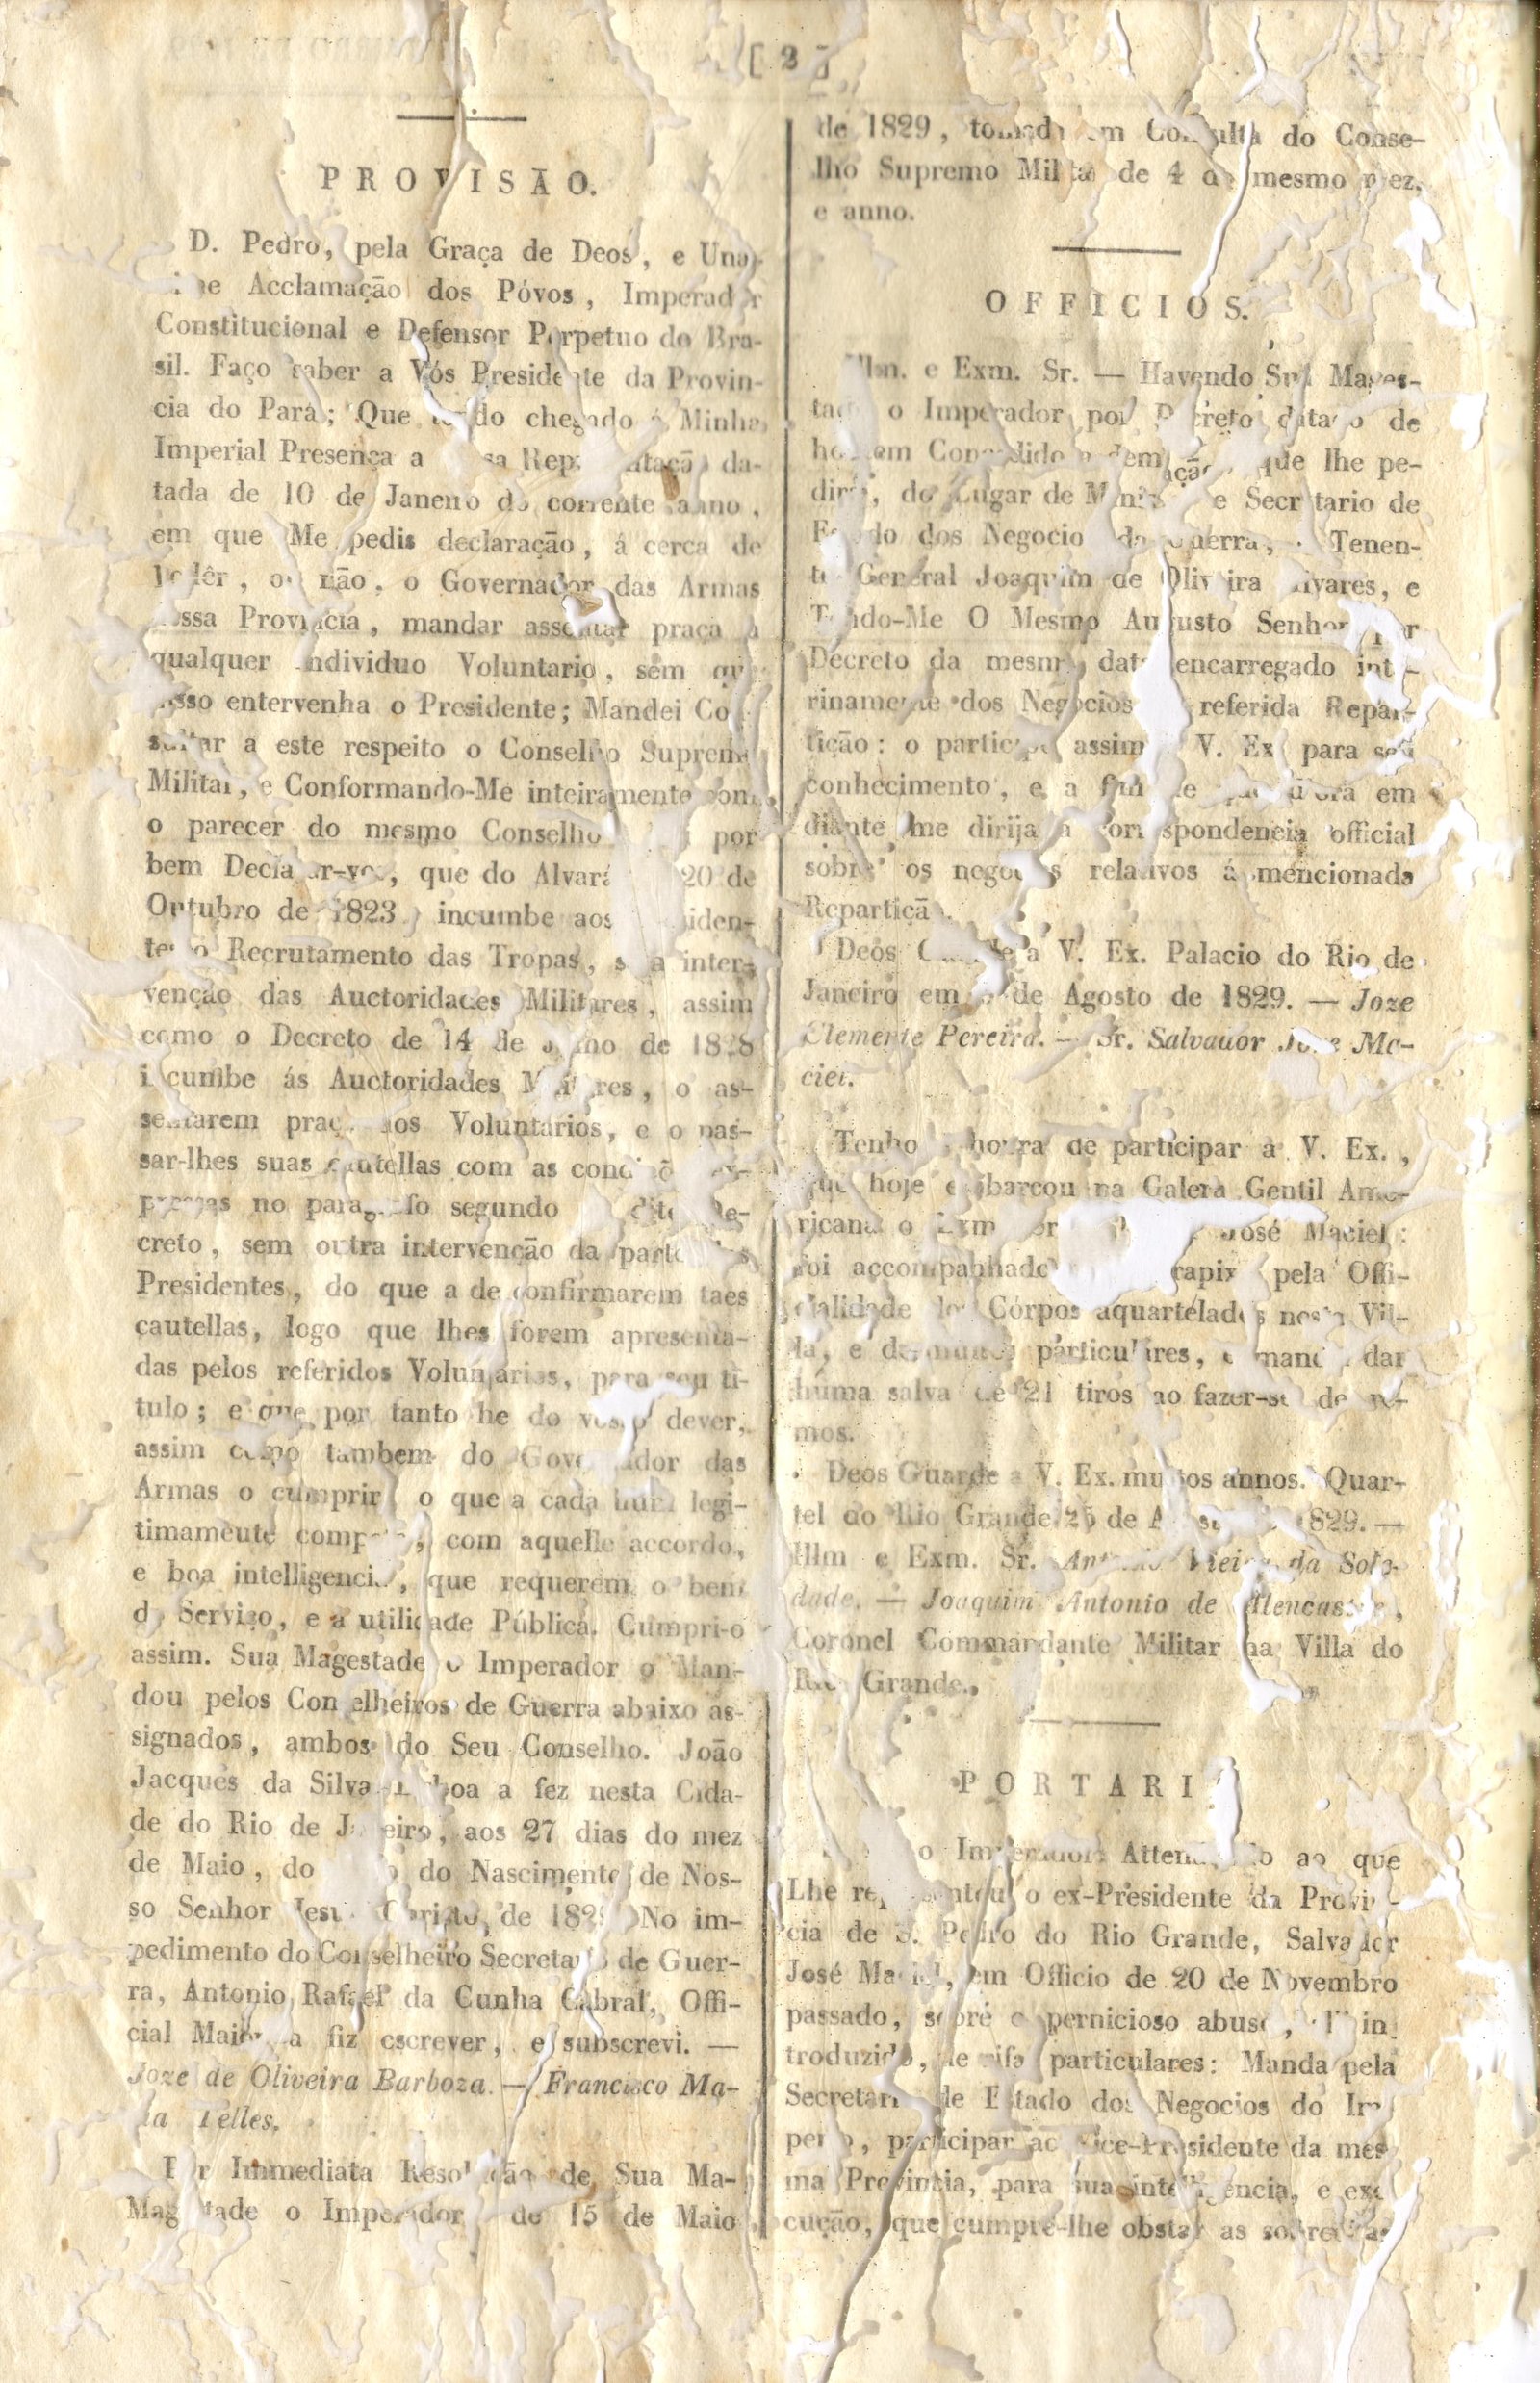 [ 2 ]
PROVISÃO.
D. Pedro, pela Graça de Deos, e Una-
Acclamação dos Póvos, Imperador
Constitucional e Defensor Perpetuo do Bra-
sil. Faço saber a Vós Presidente da Provin-
cia do Pará; Que tendo chegado á Minha
Imperial Presença a Representação da-
tada de 10 de Janeiro do corrente anno,
em que Me pedis declaração, á cerca de
podêr, ou não, o Governador das Armas
dessa Provincia, mandar assentar praça a
qualquer individuo Voluntario, sem que
nisso entervenha o Presidente; Mandei Con-
sultar a este respeito o Conselho Supremo
Militar, e Conformando-Me inteiramente com
o parecer do mesmo Conselho por
bem Declarar-vos, que do Alvará 20 de
Outubro de 1823, incumbe aos Presiden-
tes o Recrutamento das Tropas, sem a inter-
venção das Auctoridades Militares, assim
como o Decreto de 14 de de 1828
incumbe ás Auctoridades Militares, o as-
sentarem praça aos Voluntarios, e o pas-
sar-lhes suas cautellas com as condições ex-
pressas no paragrafo segundo dito De-
creto, sem outra intervenção da parte dos
Presidentes, do que a de confirmarem taes
cautellas, logo que lhes forem apresenta-
das pelos referidos Voluntarios, para seu ti-
tulo; e que por tanto he do vosso dever,
assim como tambem do Governador das
Armas o cumprir o que a cada hum legi-
timamente compete, com aquelle accordo,
e boa intelligencia, que requerem o bem
do Serviço, e a utilidade Pública. Cumpri-o
assim. Sua Magestade o Imperador o Man-
dou pelos Conselheiros de Guerra abaixo as-
signados, ambos do Seu Conselho. João
Jacques da Silva Lisboa a fez nesta Cida-
de do Rio de Janeiro, aos 27 dias do mez
de Maio, do do Nascimento de Nos-
so Senhor Jesus Christo, de 1829. No im-
pedimento do Conselheiro Secretario de Guer-
ra, Antonio Rafael da Cunha Cabral, Offi-
cial Maior a fiz escrever, e subscrevi. —
Joze de Oliveira Barboza. — Francisco Ma-
ria Telles.
Por Immediata Resolução de Sua Ma-
Magestade o Imperador de 15 de Maio
de 1829, tomada em Consulta do Conse-
lho Supremo Militar de 4 do mesmo mez,
e anno.
OFFICIOS.
Illm. e Exm. Sr. — Havendo Sua Mages-
tade o Imperador por Decreto datado de
hontem Concedido a demissão que lhe pe-
dira, do Lugar de Ministro e Secretario de
Estado dos Negocios da Guerra, o Tenen-
te General Joaquim de Oliveira Alvares, e
Tendo-Me O Mesmo Augusto Senhor por
Decreto da mesma data encarregado inte-
rinamente dos Negocios referida Repar-
tição: o participo assim V. Ex. para seu
conhecimento, e a fim de que d'ora em
diante me dirija a correspondencia official
sobre os negocios relativos á mencionada
Repartição.
Deos Guarde a V. Ex. Palacio do Rio de
Janeiro em de Agosto de 1829. — Joze
Clemente Pereira. — Sr. Salvador Joze Ma-
ciel.
Tenho a honra de participar a V. Ex.,
que hoje embarcou na Galera Gentil Ame-
ricana o Exm. José Maciel:
foi accompanhado trapixe pela Offi-
cialidade dos Córpos aquartelados nesta Vil-
la, e de muitos particulares, e mandei dar
huma salva de 21 tiros ao fazer-se de re-
mos.
Deos Guarde a V. Ex. muitos annos. Quar-
tel do Rio Grande 25 de Agosto de 1829. —
Illm e Exm. Sr. Antonio Vieira da Sole-
dade. — Joaquim Antonio de Alencastre,
Coronel Commandante Militar na Villa do
Rio Grande.
PORTARIA
o Imperador Attendendo ao que
Lhe representou o ex-Presidente da Provin-
cia de S. Pedro do Rio Grande, Salvador
José Maciel, em Officio de 20 de Novembro
passado, sobre o pernicioso abuso, alli in-
troduzido, de rifas particulares: Manda pela
Secretaria de Estado dos Negocios do Im-
perio, participar ao Vice-Presidente da mes-
ma Provincia, para sua intelligencia, e exe-
cução, que cumpre-lhe obstar as sobreditas